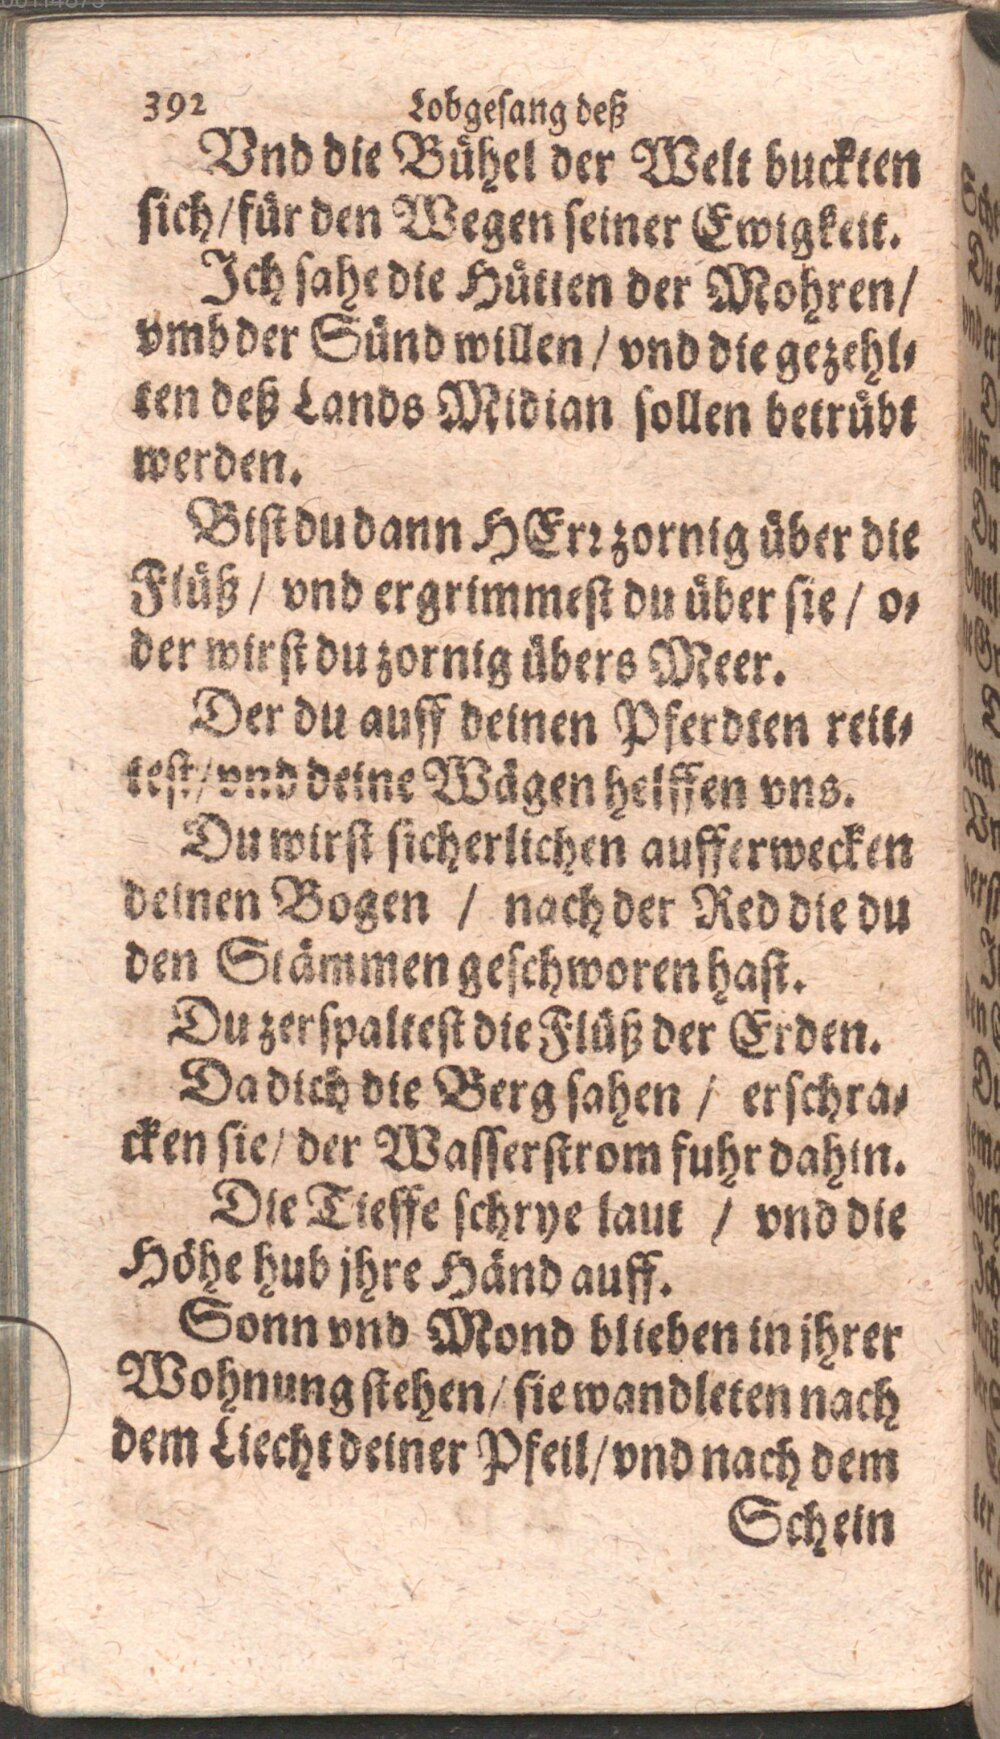 392 Lobgesang deß
Vnd die Bühel der Welt buckten
sich/für den Wegen seiner Ewigkeit.
Ich sahe die Hütten der Mohren/
vmb der Sünd willen / vnd die gezehl-
ten deß Lands Midian sollen betrübt
werden.
Bist du dann HErr zornig über die
Flüß / vnd ergrimmest du über sie / o-
der wirst du zornig übers Meer.
Der du auff deinen Pferdten reit-
test/vnd deine Wägen helffen vns.
Du wirst sicherlichen aufferwecken
deinen Bogen / nach der Red die du
den Stämmen geschworen hast.
Du zerspaltest die Flüß der Erden.
Da dich die Berg sahen / erschra-
cken sie/ der Wasserstrom fuhr dahin.
Die Tieffe schrye laut / vnd die
Höhe hub jhre Händ auff.
Sonn vnd Mond blieben in jhrer
Wohnung stehen/ sie wandleten nach
dem Liecht deiner Pfeil/vnd nach dem
Schein